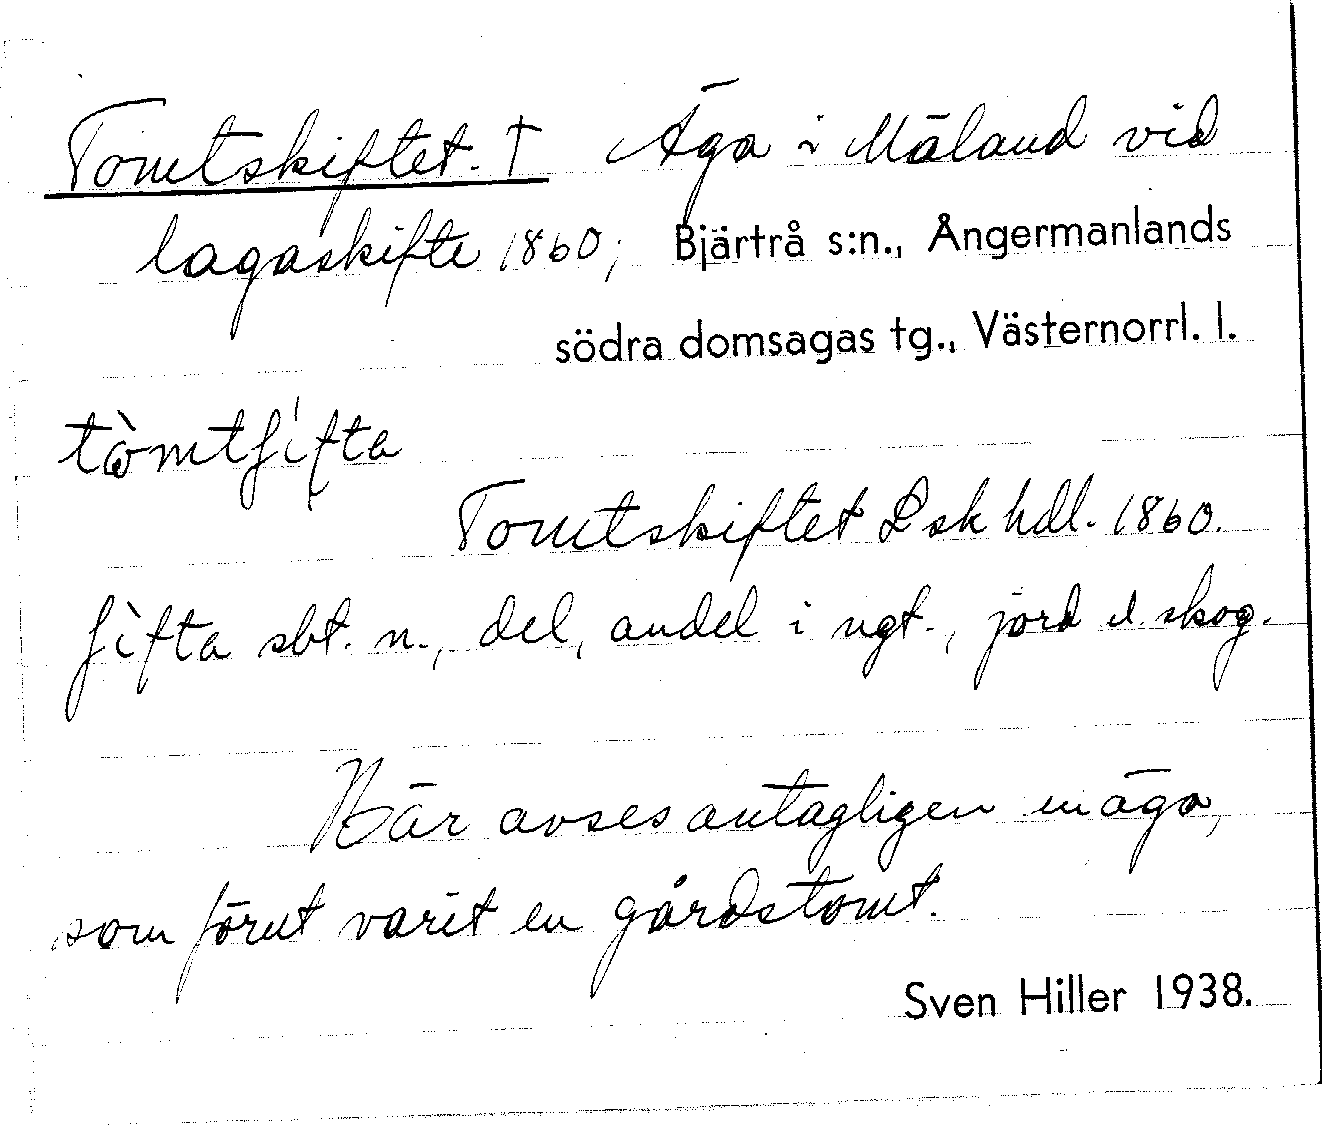 Tomtskiftet. † Äga i Mäland vid
lagaskifte 1860; Bjärtrå s:n., Ångermanlands
södra domsagas tg., Västernorrl. l.
tòmtʃifta
Tomtskiftet Lsk hdl. 1860.
ʃìfta sbt. n., del, andel i ngt., jord el skog.
Här avses antagligen en äga,
som förut varit en gårdstomt.
Sven Hiller 1938.